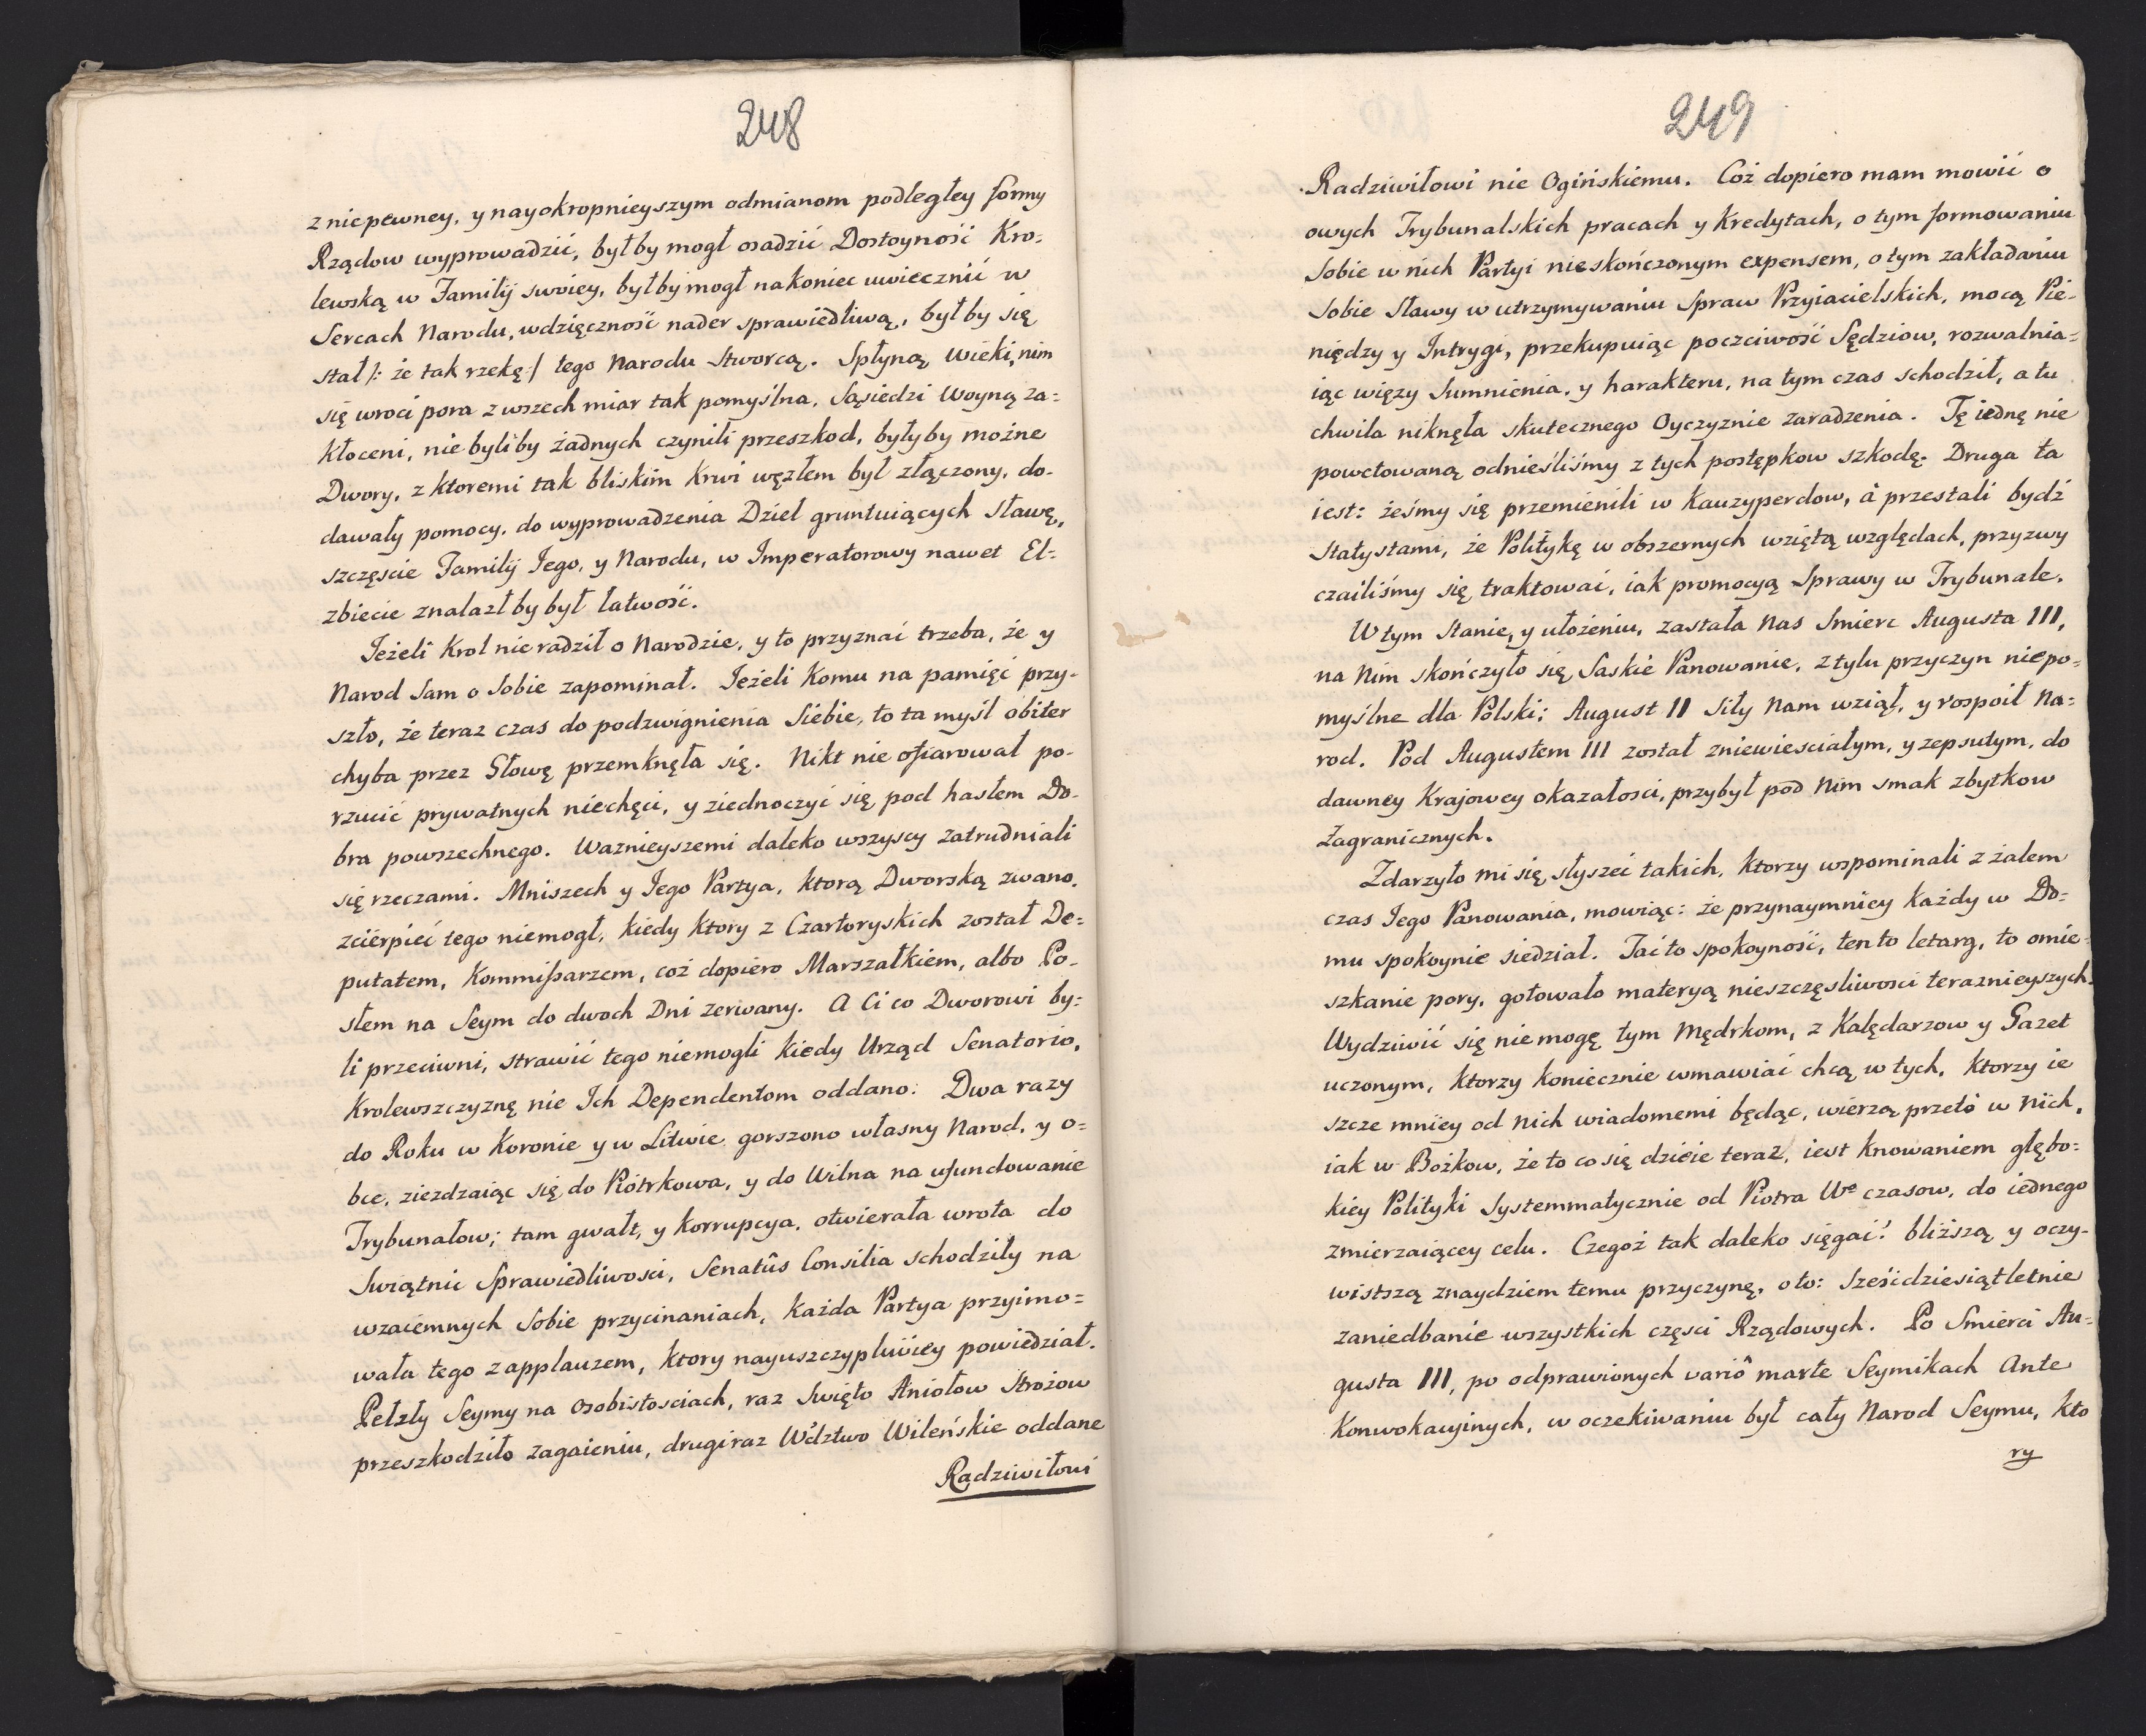 248
z niepewney, y nayokropnieyszym odmianom podległey formy
Rządow wyprowadzić, byłby mogł osadzić Dostoyność Kro=
lewską w Familij swoiey, byłby mogł nakoniec uwiecznić w
Sercach Narodu, wdzięczność nader sprawiedliwą, byłby się
stał /: że tak rzekę :/ tego Narodu Stworcą. Spłyną wieki, nim
się wroci pora z wszech miar tak pomyślna, Sąsiedzi Woyną za=
kłoceni, nie byliby żadnych czynili przeszkod, byłyby możne
Dwory, z ktoremi tak bliskim krwi węzłem był złączony, do-
dawały pomocy, do wyprowadzenia Dzieł gruntuiących sławę,
szczęscie Familij Jego, y Narodu, w Imperatorowy nawet El=
zbiecie znalazłby był łatwość.
Jeżeli Krol nie radził o Narodzie, y to przyznać trzeba, że y
Narod sam o Sobie zapominał. Jeżeli komu na pamięć przy-
szło, że teraz czas do podzwignienia Siebie, to ta myśl obiter
chyba przez Głowę przemknęła się. Nikt nie ofiarował po-
rzucić prywatnych niechęci, y ziednoczyć się pod hasłem Do-
bra powszechnego. Ważnieyszemi daleko wszyscy zatrudniali
się rzeczami. Mniszech y Jego Partya, ktorą Dworską zwano,
zcierpieć tego niemogł, kiedy ktory z Czartoryskich został De=
putatem, Kommißarzem, coż dopiero Marszałkiem, albo Po-
słem na Seym do dwoch Dni zerwany. A Ci co Dworowi by=
li przeciwni, strawić tego niemogli kiedy Urząd Senatorio,
Krolewszczyznę nie Ich Dependentom oddano: Dwa razy
do Roku w Koronie y w Litwie gorszono własny Narod, y o=
bce, ziezdzaiąc się do Piotrkowa, y do Wilna na ufundowanie
Trybunałow; tam gwałt, y korrupcya, otwierała wrota do
Swiątnic Sprawiedliwosci, Senatûs Consilia schodziły na
wzaiemnych Sobie przycinaniach, każda Partya przyimo=
wała tego z applauzem, ktory nayuszczypliwiey powiedział.
Pełzły Seymy na osobistosciach, raz Swięto Aniołow Strożow
przeszkodziło zagaieniu, drugi raz Wdztwo Wileńskie oddane
Radziwiłowi
249
Radziwiłowi nie Ogińskiemu. Coż dopiero mam mowić o
owych Trybunalskich pracach y kredytach, o tym formowaniu
Sobie w nich Partyi nieskończonym expensem, o tym zakładaniu
Sobie Sławy w utrzymywaniu Spraw Przyiacielskich, mocą Pie-
niędzy y Intrygi, przekupuiąc poczciwość Sędziow, rozwalnia=
iąc więzy Sumnienia, y harakteru, na tym czas schodził, a tu
chwila niknęła skutecznego Oyczyznie zaradzenia. Tę iednę nie
powetowaną odnieśliśmy z tych postępkow szkodę. Druga ta
iest: żeśmy się przemienili w Kauzyperdow, à przestali bydź
Statystami, że Politykę w obszernych wziętą względach, przyzwy
czailiśmy się traktować, iak promocyą Sprawy w Trybunale.
W tym stanie, y ułożeniu, zastała nas Smierc Augusta III,
na Nim skończyło się Saskie Panowanie, z tylu przyczyn niepo=
myślne dla Polski; August II siły nam wziął, y rospoił Na=
rod. Pod Augustem III został zniewiesciałym, y zepsutym, do
dawney Krajowey okazałosci, przybył pod Nim smak zbytkow
Zagranicznych.
Zdarzyło mi się słyszeć takich, ktorzy wspominali z żalem
czas Jego Panowania, mowiąc: że przynaymniey każdy w Do=
mu spokoynie siedział. Tać to spokoyność, ten to letarg, to omie-
szkanie pory, gotowało materyą nieszczęsliwosci teraznieyszych.
Wydziwić się nie mogę tym Mędrkom, z Kalędarzow y Gazet
uczonym, ktorzy koniecznie wmawiać chcą w tych, ktorzy ie
szcze mniey od nich wiadomemi będąc, wierzą przeto w Nich,
iak w Bożkow, że to co się dzieie teraz, iest knowaniem głębo=
kiey Polityki systemmatycznie od Piotra Wo czasow, do iednego
zmierzaiącey celu. Czegoż tak daleko sięgać? bliższą y oczy-
wistszą znaydziem temu przyczynę, oto: Sześćdziesiątletnie
zaniedbanie wszystkich częsci Rządowych. Po Smierci Au=
gusta III, po odprawionych variô marte Seymikach Ante
Konwokacyinych, w oczekiwaniu był cały Narod Seymu, kto
ry